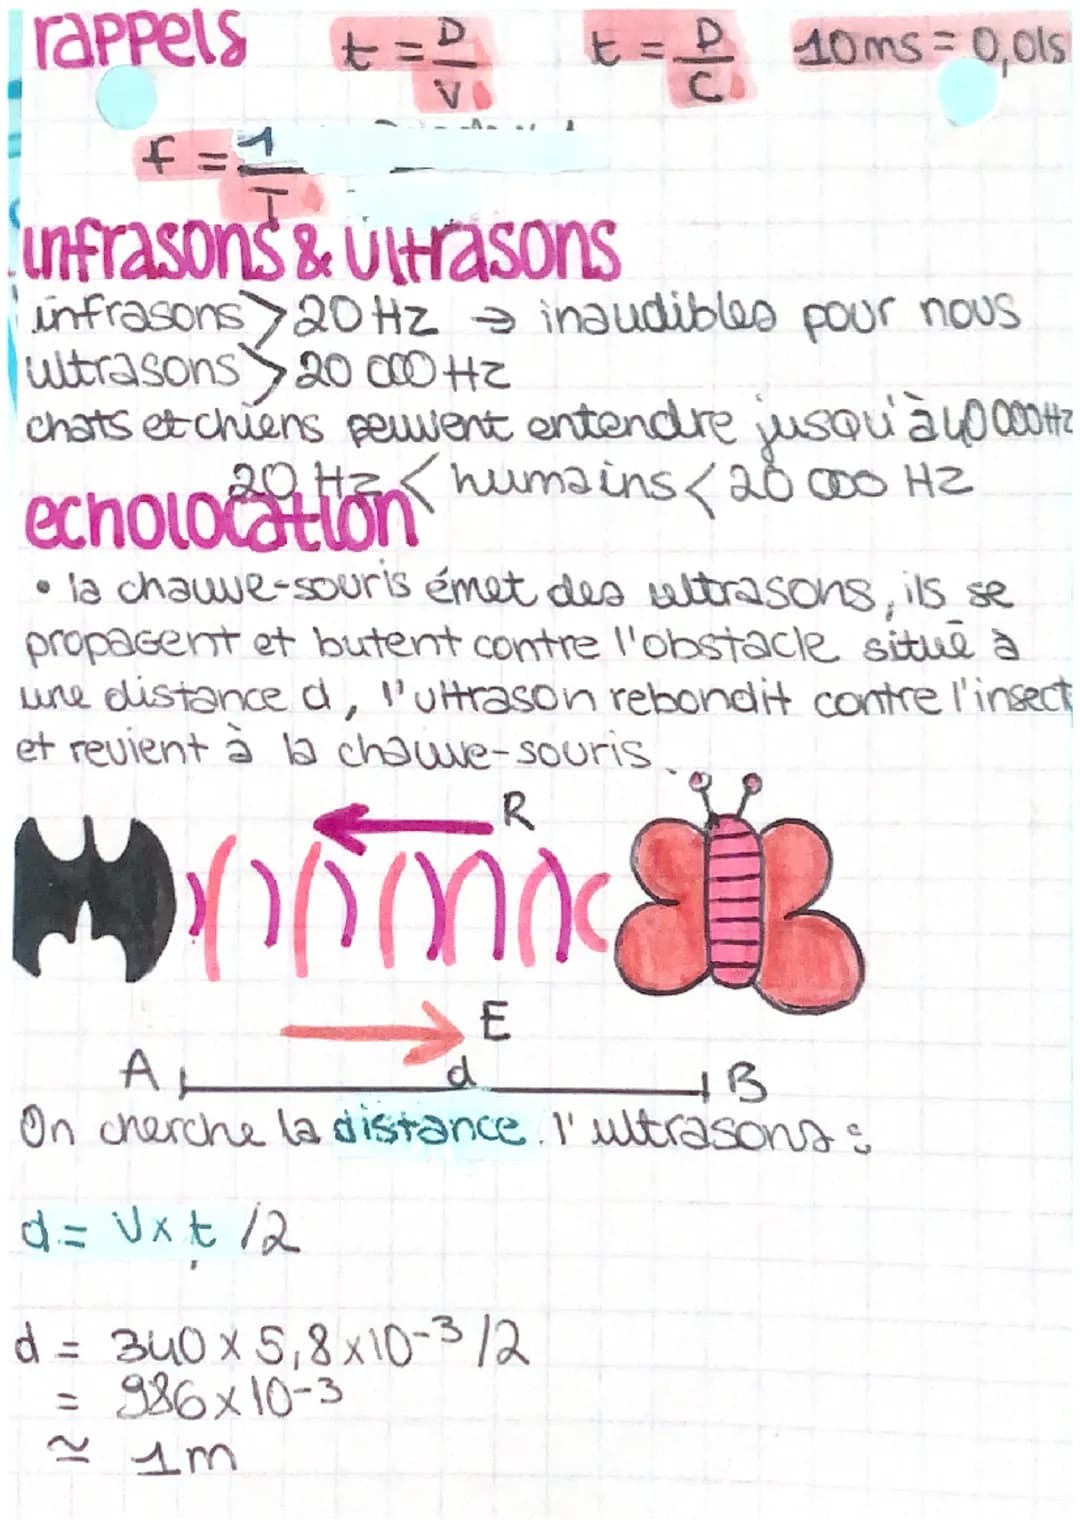 rappels t = D/V t = D/C 10ms = 0,01s
f = 1/T
infrasons & ultrasons
infrasons > 20 Hz → inaudibles pour nous
ultrasons > 20 000 Hz
chats et chiens peuvent entendre jusqu'à 40 000 Hz
20 Hz < humains < 20 000 Hz
echolocation
• la chauve-souris émet des ultrasons, ils se
propagent et butent contre l'obstacle situé à
une distance d, l'ultrason rebondit contre l'insect
et revient à la chauve-souris.
R
E
A d B
On cherche la distance. l'ultrasons :
d = V x t /2
d = 340 x 5,8 x 10-3 /2
= 986 x 10-3
≃ 1m